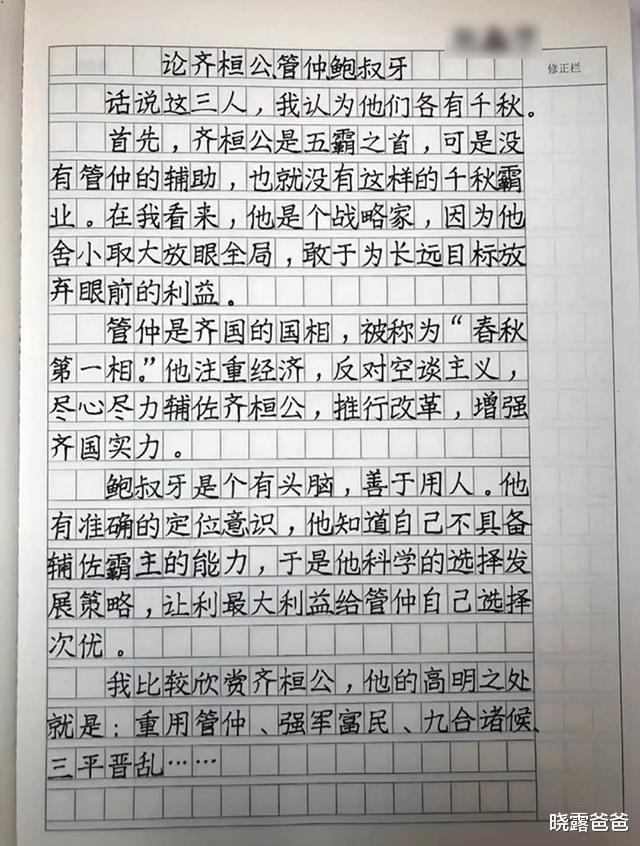 论齐桓公管仲鲍叔牙
修正栏
话说这三人，我认为他们各有千秋。
首先，齐桓公是五霸之首，可是没
有管仲的辅助，也就没有这样的千秋霸
业。在我看来，他是个战略家，因为他
舍小取大放眼全局，敢于为长远目标放
弃眼前的利益。
管仲是齐国的国相，被称为“春秋
第一相。”他注重经济，反对空谈主义，
尽心尽力辅佐齐桓公，推行改革，增强
齐国实力。
鲍叔牙是个有头脑，善于用人。他
有准确的定位意识，他知道自己不具备
辅佐霸主的能力，于是他科学的选择发
展策略，让利最大利益给管仲自己选择
次优。
我比较欣赏齐桓公，他的高明之处
就是：重用管仲、强军富民、九合诸候、
三平晋乱……
晓露爸爸